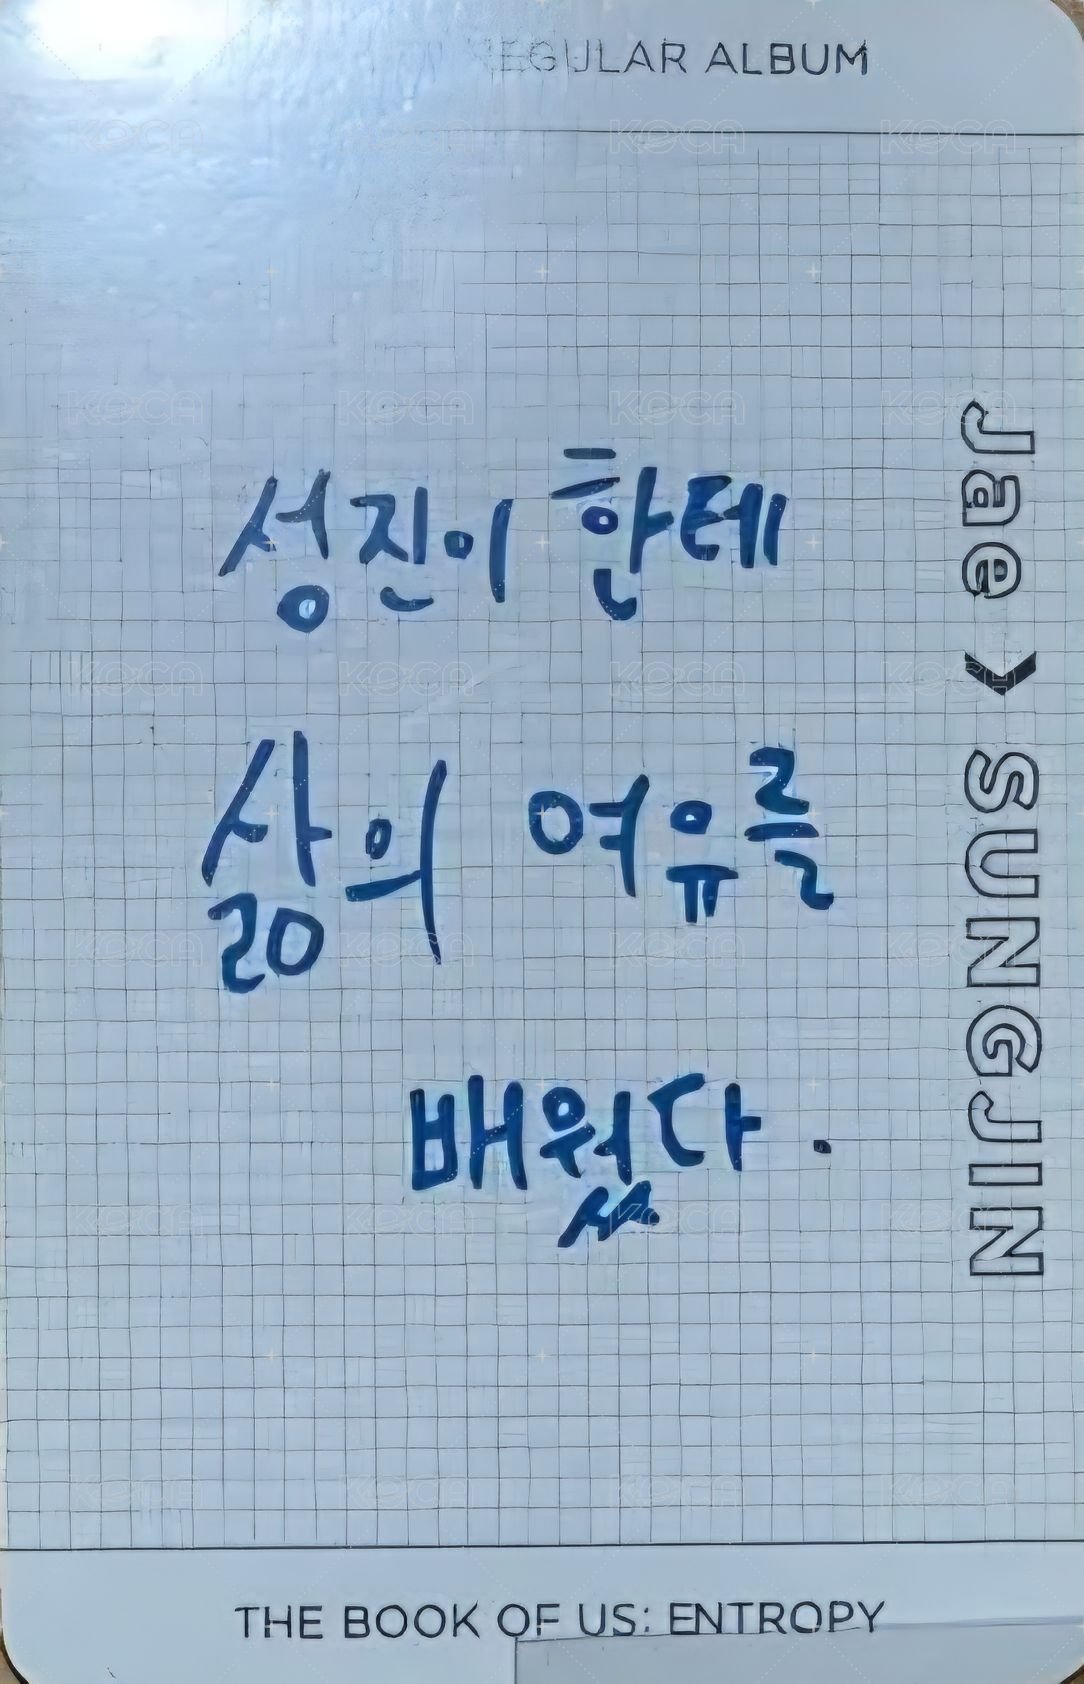 REGULAR ALBUM
성진이 한테
삶의 여유를
배웠다.
Jae > SUNGJIN
THE BOOK OF US: ENTROPY
KOCA